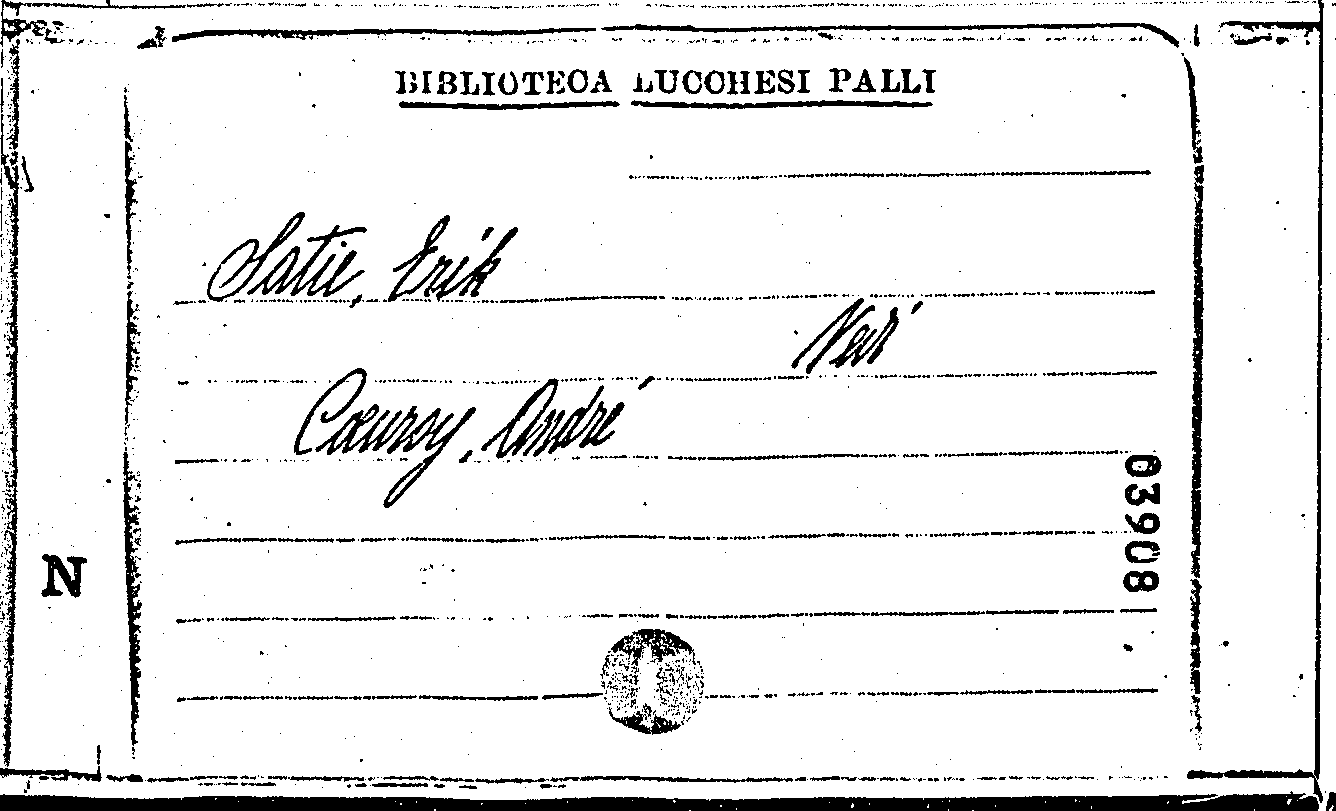 BIBLIOTECA LUCCHESI PALLI
Satie, Erik
Vedi
Cœuroy, André
03908
N